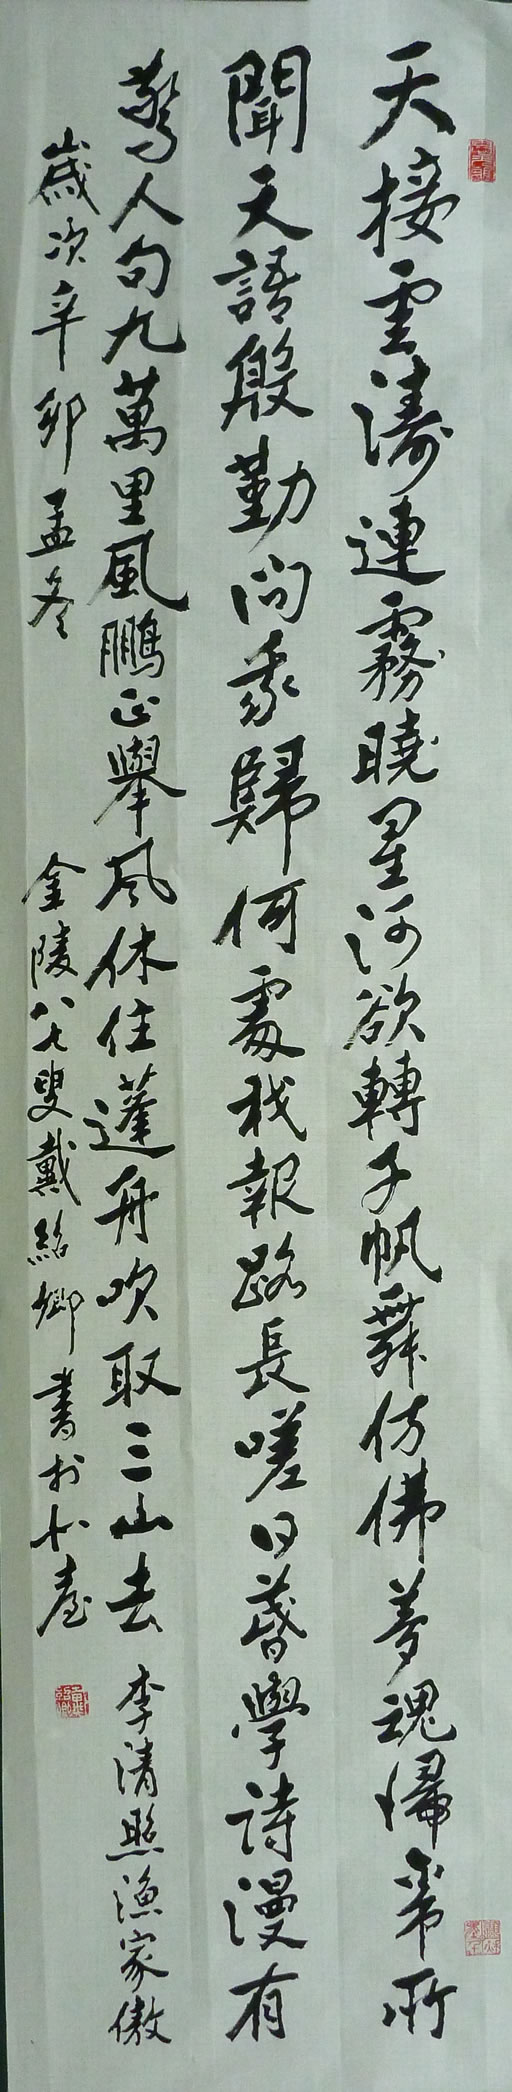 天接雲濤連霧曉星河欲轉千帆舞仿佛夢魂歸帝所
聞天語殷勤問我歸何處我報路長嗟日暮學詩漫有
驚人句九萬里風鵬正舉風休住蓬舟吹取三山去 李清照漁家傲
歲次辛卯孟冬 金陵八七叟戴紹卿書於小臺